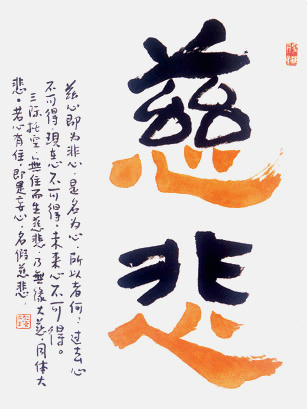 慈悲
兹心即为非心,是名为心,所以者何:过去心
不可得,現在心不可得,未来心不可得。
三际托空,無住而生慈悲,乃無缘大慈,同体大
悲。若心有住,即是妄心,名假慈悲。